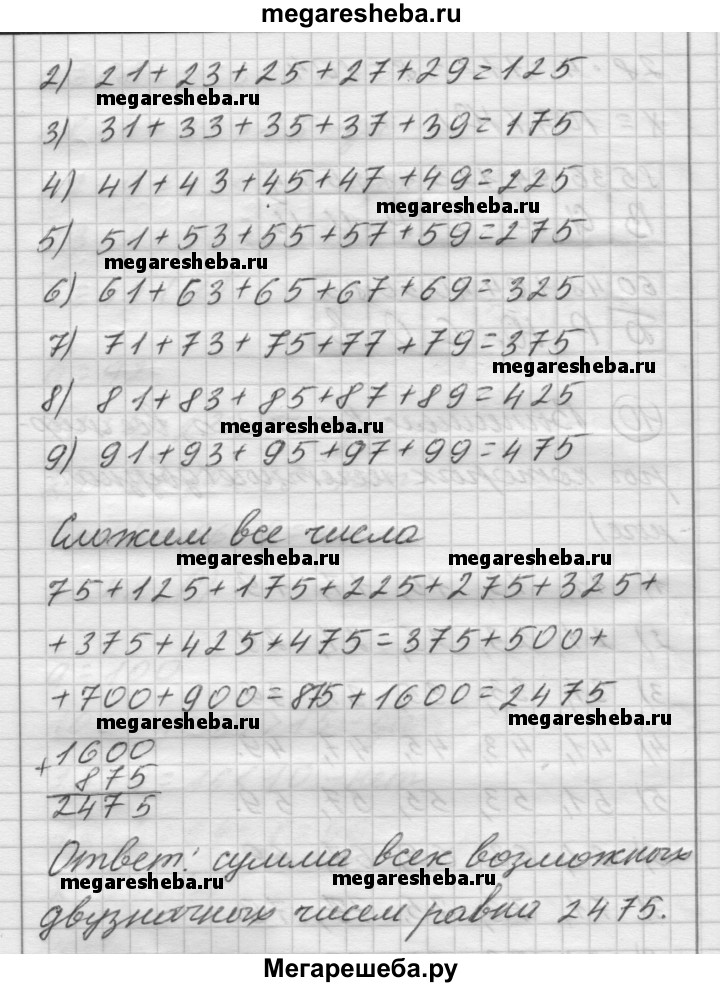 megaresheba.ru
2) 21+23+25+27+29=125
megaresheba.ru
3) 31+33+35+37+39=175
4) 41+43+45+47+49=225
megaresheba.ru
5) 51+53+55+57+59=275
megaresheba.ru
6) 61+63+65+67+69=325
7) 71+73+75+77+79=375
megaresheba.ru
8) 81+83+85+87+89=425
megaresheba.ru
9) 91+93+95+97+99=475
Сложим все числа
megaresheba.ru megaresheba.ru
75+125+175+225+275+325+
+375+425+475=375+500+
+700+900=875+1600=2475
megaresheba.ru megaresheba.ru
+1600
875
2475
Ответ: сумма всех возможных
megaresheba.ru megaresheba.ru
двузначных чисел равна 2475.
Мегарешеба.ру